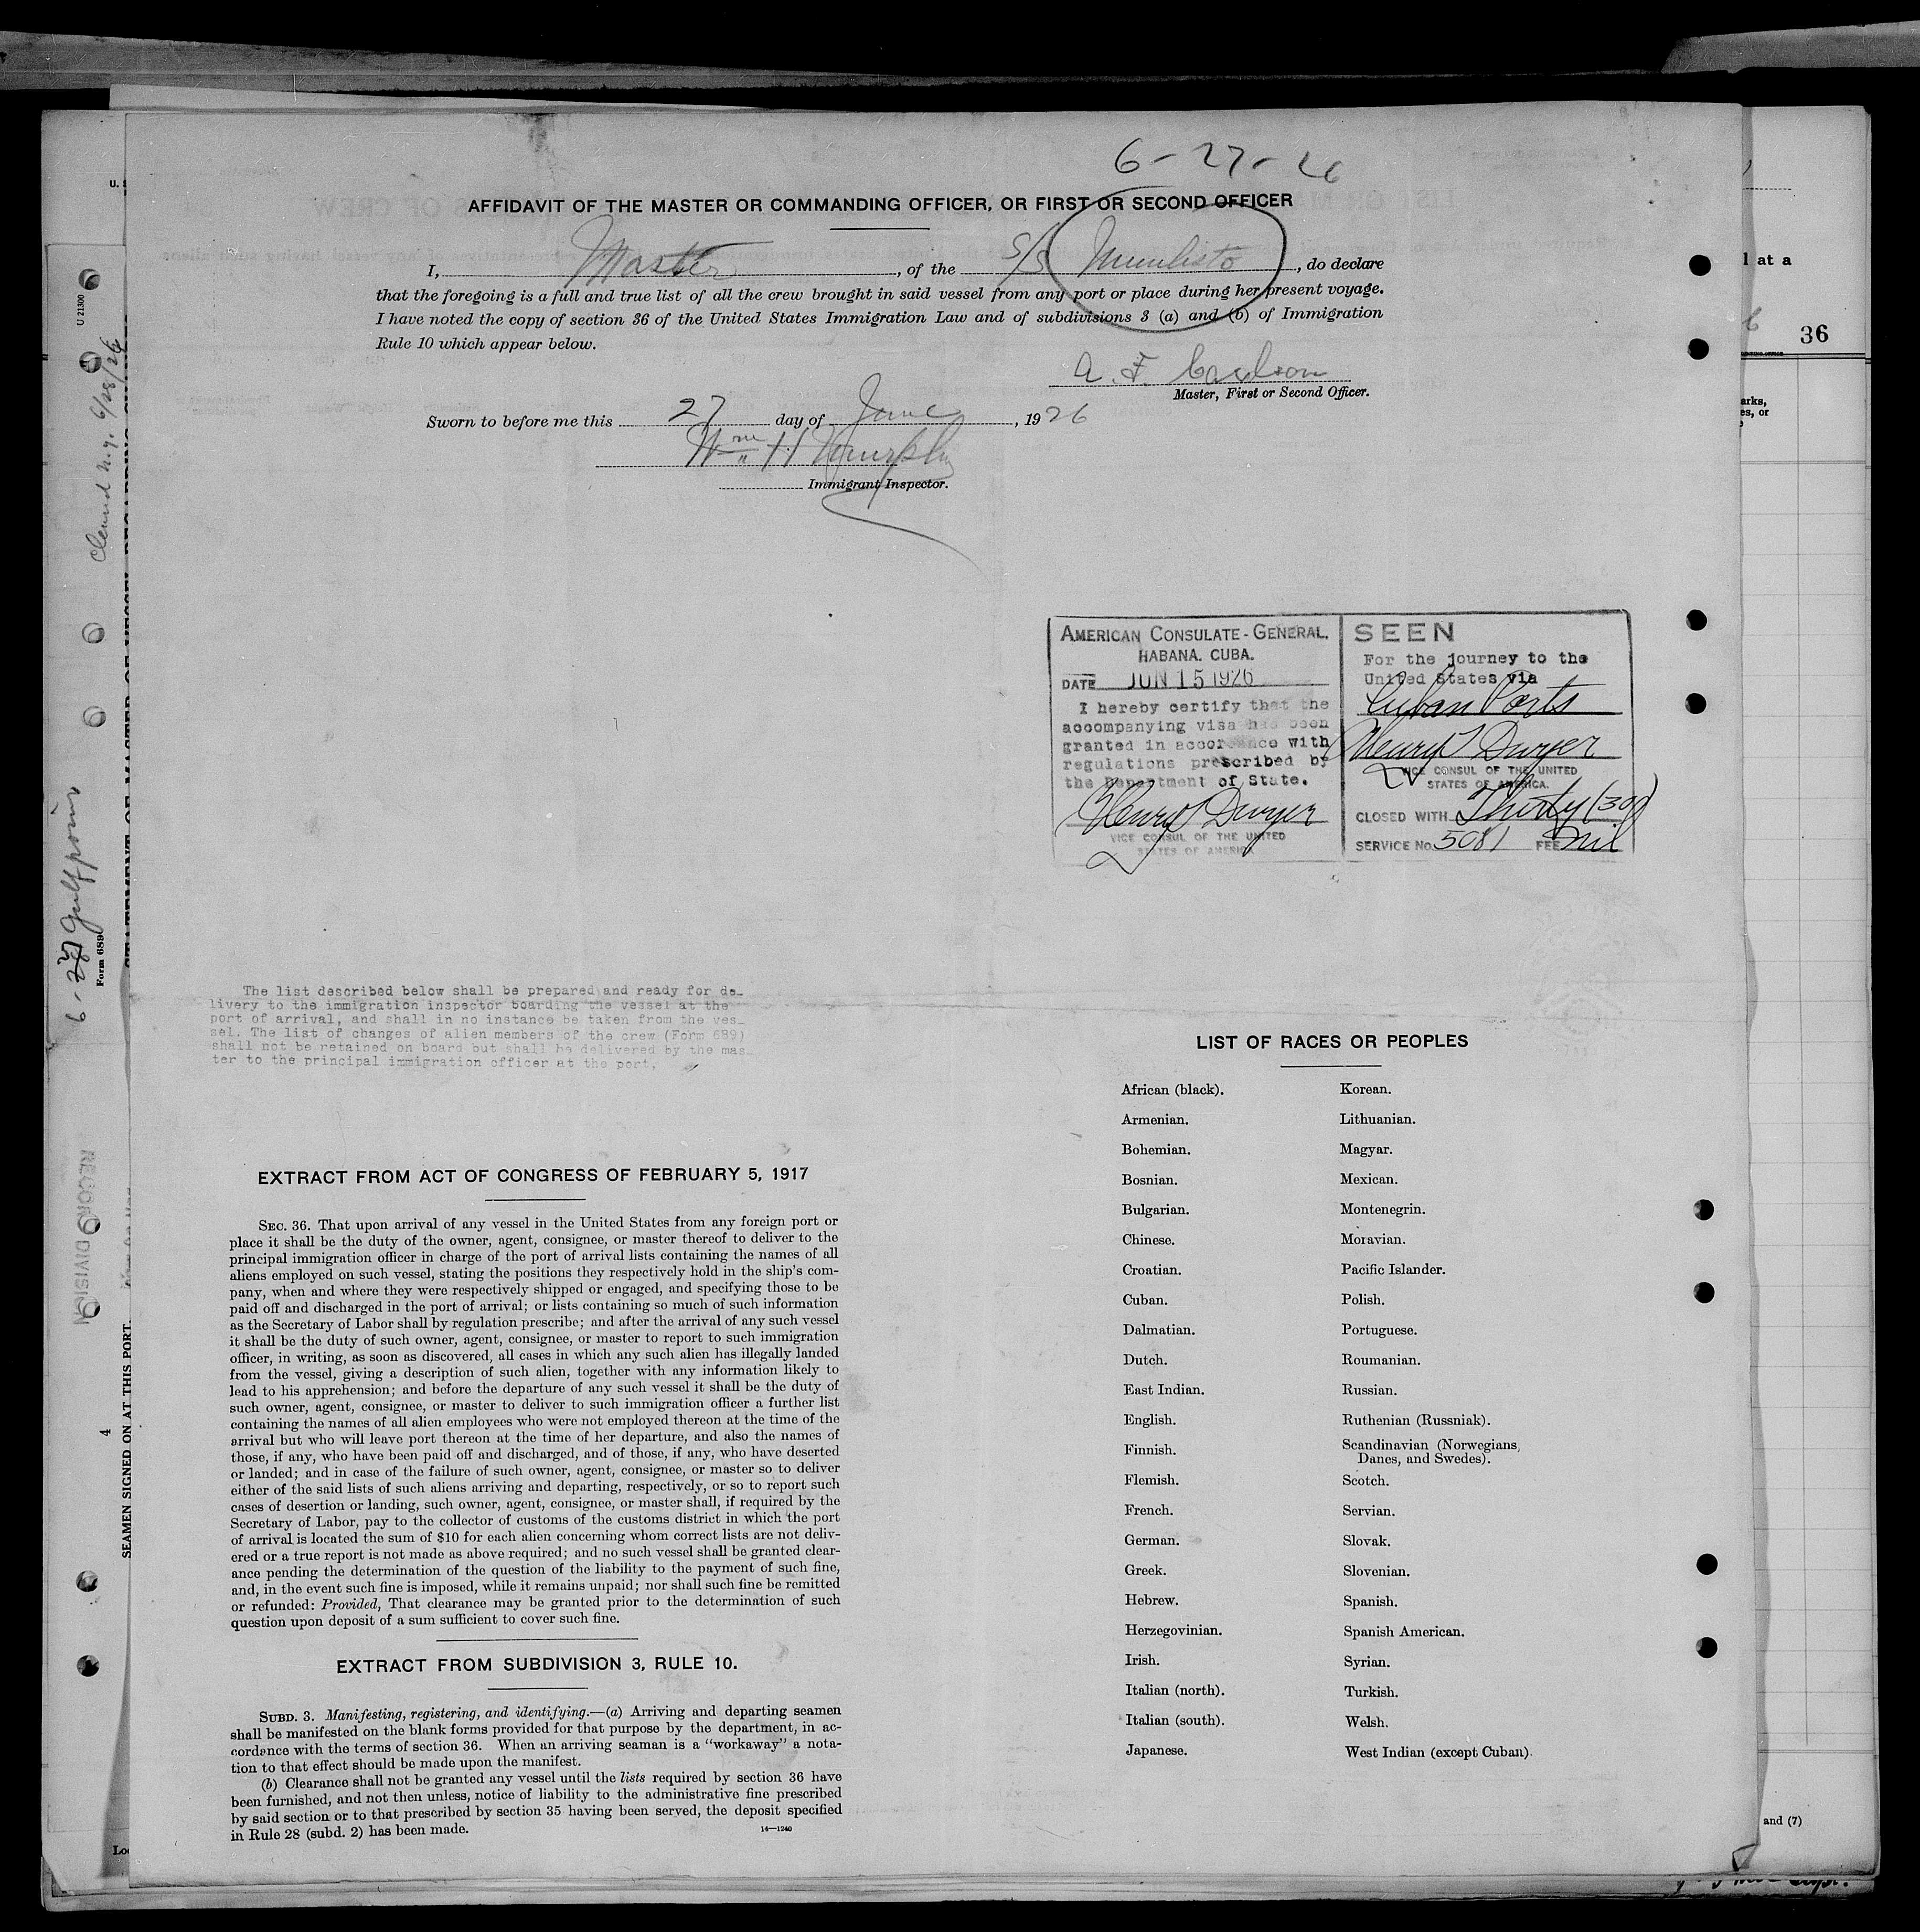 6-27-26
AFFIDAVIT OF THE MASTER OR COMMANDING OFFICER, OR FIRST OR SECOND OFFICER
I, Master, of the S/S Munlisto, do declare
that the foregoing is a full and true list of all the crew brought in said vessel from any port or place during her present voyage.
I have noted the copy of section 36 of the United States Immigration Law and of subdivisions 3 (a) and (b) of Immigration
Rule 10 which appear below.
A. F. Carlson
Master, First or Second Officer.
Sworn to before me this 27 day of June, 1926
Wm H Murphy
Immigrant Inspector.
AMERICAN CONSULATE-GENERAL.
HABANA. CUBA.
DATE JUN 15 1926
I hereby certify that the
accompanying visa has been
granted in accordance with
regulations prescribed by
the Department of State.
Henry T Dwyer
VICE CONSUL OF THE UNITED
STATES OF AMERICA
SEEN
For the journey to the
United States via
Cuban Ports
Henry T Dwyer
VICE CONSUL OF THE UNITED
STATES OF AMERICA.
CLOSED WITH Thirty (30)
SERVICE No. 5081 FEE nil
The list described below shall be prepared and ready for de-
livery to the immigration inspector boarding the vessel at the
port of arrival, and shall in no instance be taken from the ves-
sel. The list of changes of alien members of the crew (Form 689)
shall not be retained on board but shall be delivered by the mas-
ter to the principal immigration officer at the port.
EXTRACT FROM ACT OF CONGRESS OF FEBRUARY 5, 1917
SEC. 36. That upon arrival of any vessel in the United States from any foreign port or
place it shall be the duty of the owner, agent, consignee, or master thereof to deliver to the
principal immigration officer in charge of the port of arrival lists containing the names of all
aliens employed on such vessel, stating the positions they respectively hold in the ship's com-
pany, when and where they were respectively shipped or engaged, and specifying those to be
paid off and discharged in the port of arrival; or lists containing so much of such information
as the Secretary of Labor shall by regulation prescribe; and after the arrival of any such vessel
it shall be the duty of such owner, agent, consignee, or master to report to such immigration
officer, in writing, as soon as discovered, all cases in which any such alien has illegally landed
from the vessel, giving a description of such alien, together with any information likely to
lead to his apprehension; and before the departure of any such vessel it shall be the duty of
such owner, agent, consignee, or master to deliver to such immigration officer a further list
containing the names of all alien employees who were not employed thereon at the time of the
arrival but who will leave port thereon at the time of her departure, and also the names of
those, if any, who have been paid off and discharged, and of those, if any, who have deserted
or landed; and in case of the failure of such owner, agent, consignee, or master so to deliver
either of the said lists of such aliens arriving and departing, respectively, or so to report such
cases of desertion or landing, such owner, agent, consignee, or master shall, if required by the
Secretary of Labor, pay to the collector of customs of the customs district in which the port
of arrival is located the sum of $10 for each alien concerning whom correct lists are not deliv-
ered or a true report is not made as above required; and no such vessel shall be granted clear-
ance pending the determination of the question of the liability to the payment of such fine,
and, in the event such fine is imposed, while it remains unpaid; nor shall such fine be remitted
or refunded: Provided, That clearance may be granted prior to the determination of such
question upon deposit of a sum sufficient to cover such fine.
EXTRACT FROM SUBDIVISION 3, RULE 10.
SUBD. 3. Manifesting, registering, and identifying.—(a) Arriving and departing seamen
shall be manifested on the blank forms provided for that purpose by the department, in ac-
cordance with the terms of section 36. When an arriving seaman is a "workaway" a nota-
tion to that effect should be made upon the manifest.
(b) Clearance shall not be granted any vessel until the lists required by section 36 have
been furnished, and not then unless, notice of liability to the administrative fine prescribed
by said section or to that prescribed by section 35 having been served, the deposit specified
in Rule 28 (subd. 2) has been made.
14—1240
LIST OF RACES OR PEOPLES
African (black). Korean.
Armenian. Lithuanian.
Bohemian. Magyar.
Bosnian. Mexican.
Bulgarian. Montenegrin.
Chinese. Moravian.
Croatian. Pacific Islander.
Cuban. Polish.
Dalmatian. Portuguese.
Dutch. Roumanian.
East Indian. Russian.
English. Ruthenian (Russniak).
Finnish. Scandinavian (Norwegians,
Danes, and Swedes).
Flemish. Scotch.
French. Servian.
German. Slovak.
Greek. Slovenian.
Hebrew. Spanish.
Herzegovinian. Spanish American.
Irish. Syrian.
Italian (north). Turkish.
Italian (south). Welsh.
Japanese. West Indian (except Cuban).
U 21300
Cleared N.Y. 6/28/26
Form 689
RECORD DIVISION
4
SEAMEN SIGNED ON AT THIS PORT.
at a
36
and (7)